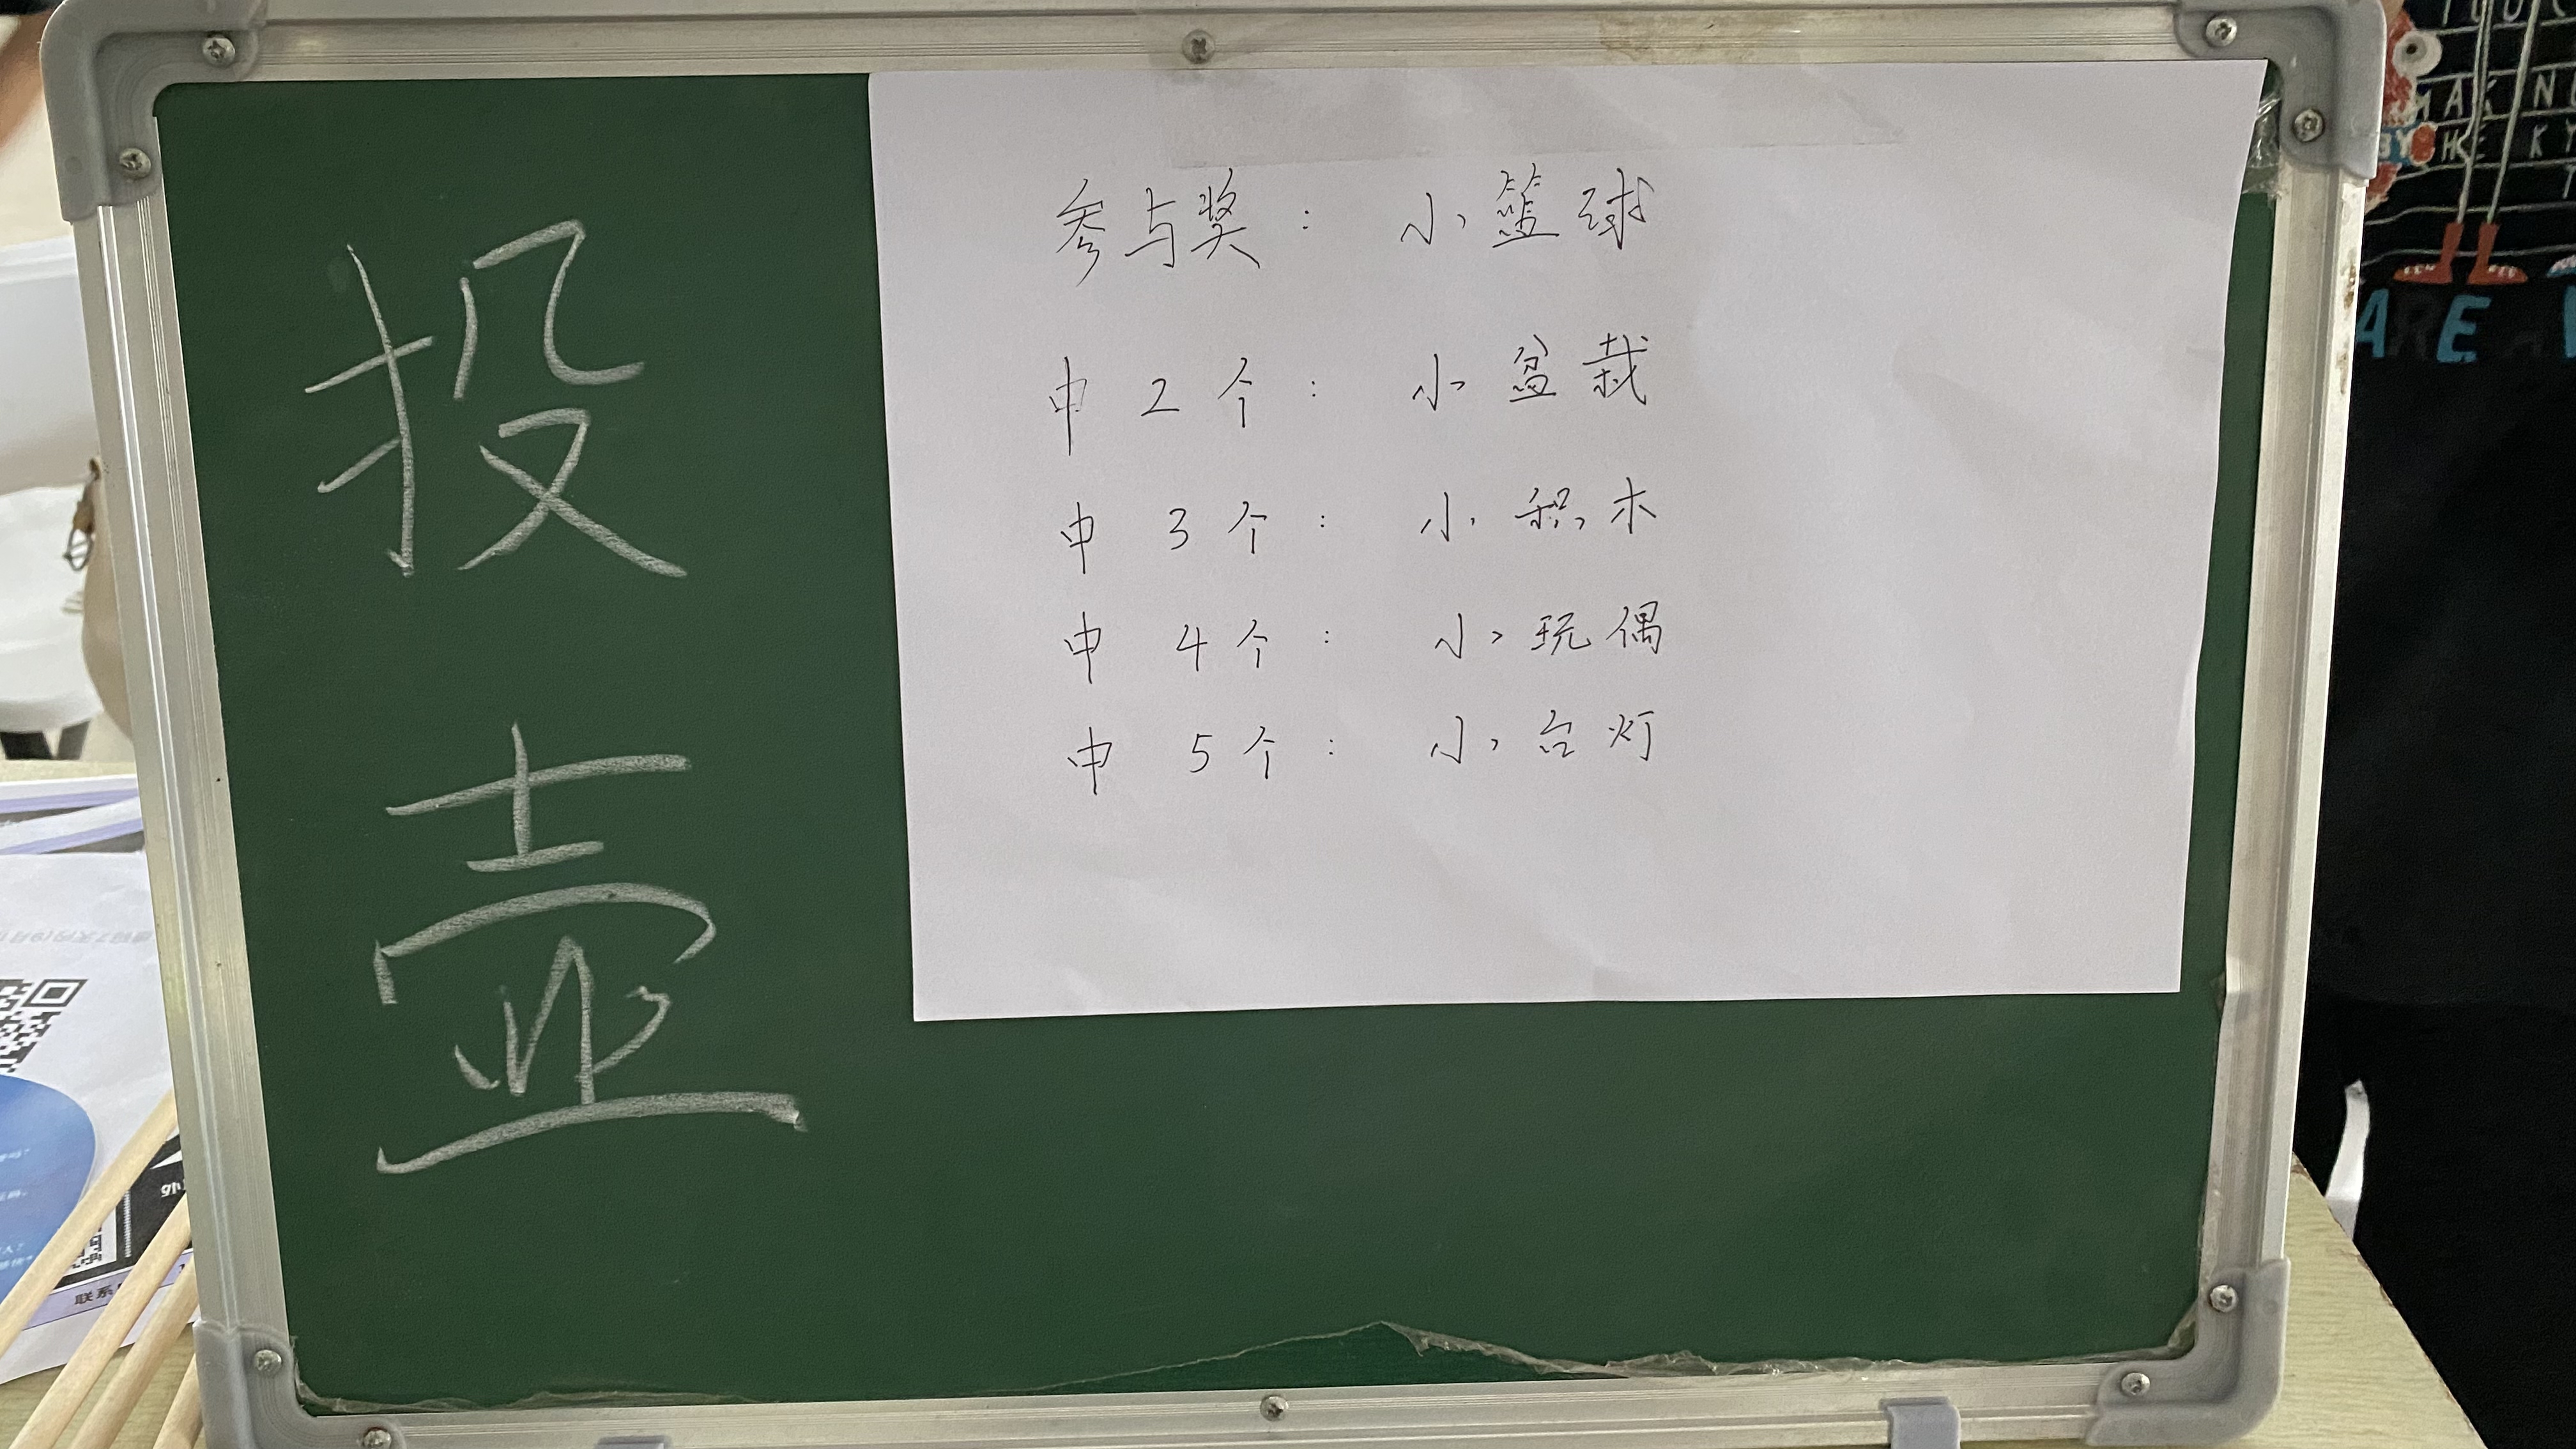 投
壶
参与奖： 小篮球
中 2 个： 小盆栽
中 3 个： 小积木
中 4 个： 小玩偶
中 5 个： 小台灯
ARE
联系